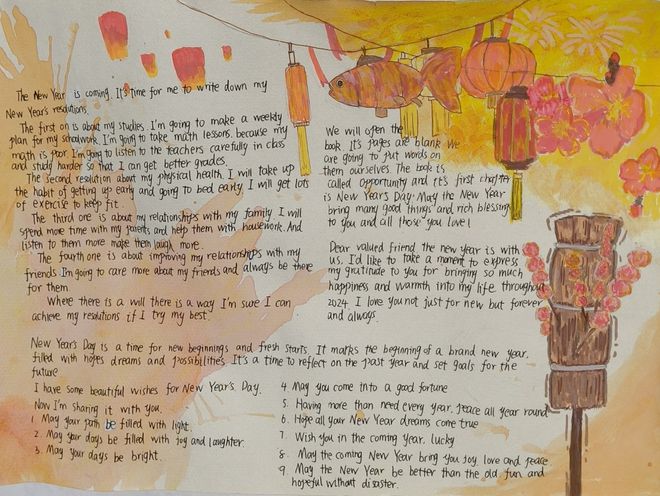 The New Year is coming. It's time for me to write down my
New Year's resolutions.
The first on is about my studies. I'm going to make a weekly
plan for my schoolwork. I'm going to take math lessons. because my
math is poor I'm going to listen to the teachers carefully in class
and study harder so that I can get better grades.
The second resolution about my physical health. I will take up
the habit of getting up early and going to bed early. I will get lots
of exercise to keep fit.
The third one is about my relationships with my family. I will
spend more time with my parents and help them with housework. And
listen to them more make them laugh more.
The fourth one is about improving my relationships with my
friends. I'm going to care more about my friends and always be there
for them
Where there is a will there is a way. I'm sure I can
achieve my resolutions if I try my best.
We will open the
book. It's pages are blank We
are going to put words on
them ourselves. The book is
called opportunity and it's first chapter
is New Year's Day. May the New Year
bring many good things and rich blessing
to you and all those you love!
Dear valued friend the new year is with
us. I'd like to take a moment to express
my gratitude to you for bringing so much
happiness and warmth into my life throughout
2024. I love you not just for new but forever
and always.
New Year's Day is a time for new beginnings and fresh starts. It marks the beginning of a brand new year.
filled with hopes dreams and possibilities. It's a time to reflect on the past year and set goals for the
future
I have some beautiful wishes for New Year's Day.
Now I'm sharing it with you.
1. May your path be filled with light.
2. May your days be filled with joy and laughter.
3. May your days be bright.
4 May you come into a good fortune
5. Having more than need every year. peace all year round
6. Hope all your New Year dreams come true
7. Wish you in the coming year. lucky
8. May the coming New Year bring you joy, love and peace
9. May the New Year be better than the old fun and
hopeful without disaster.